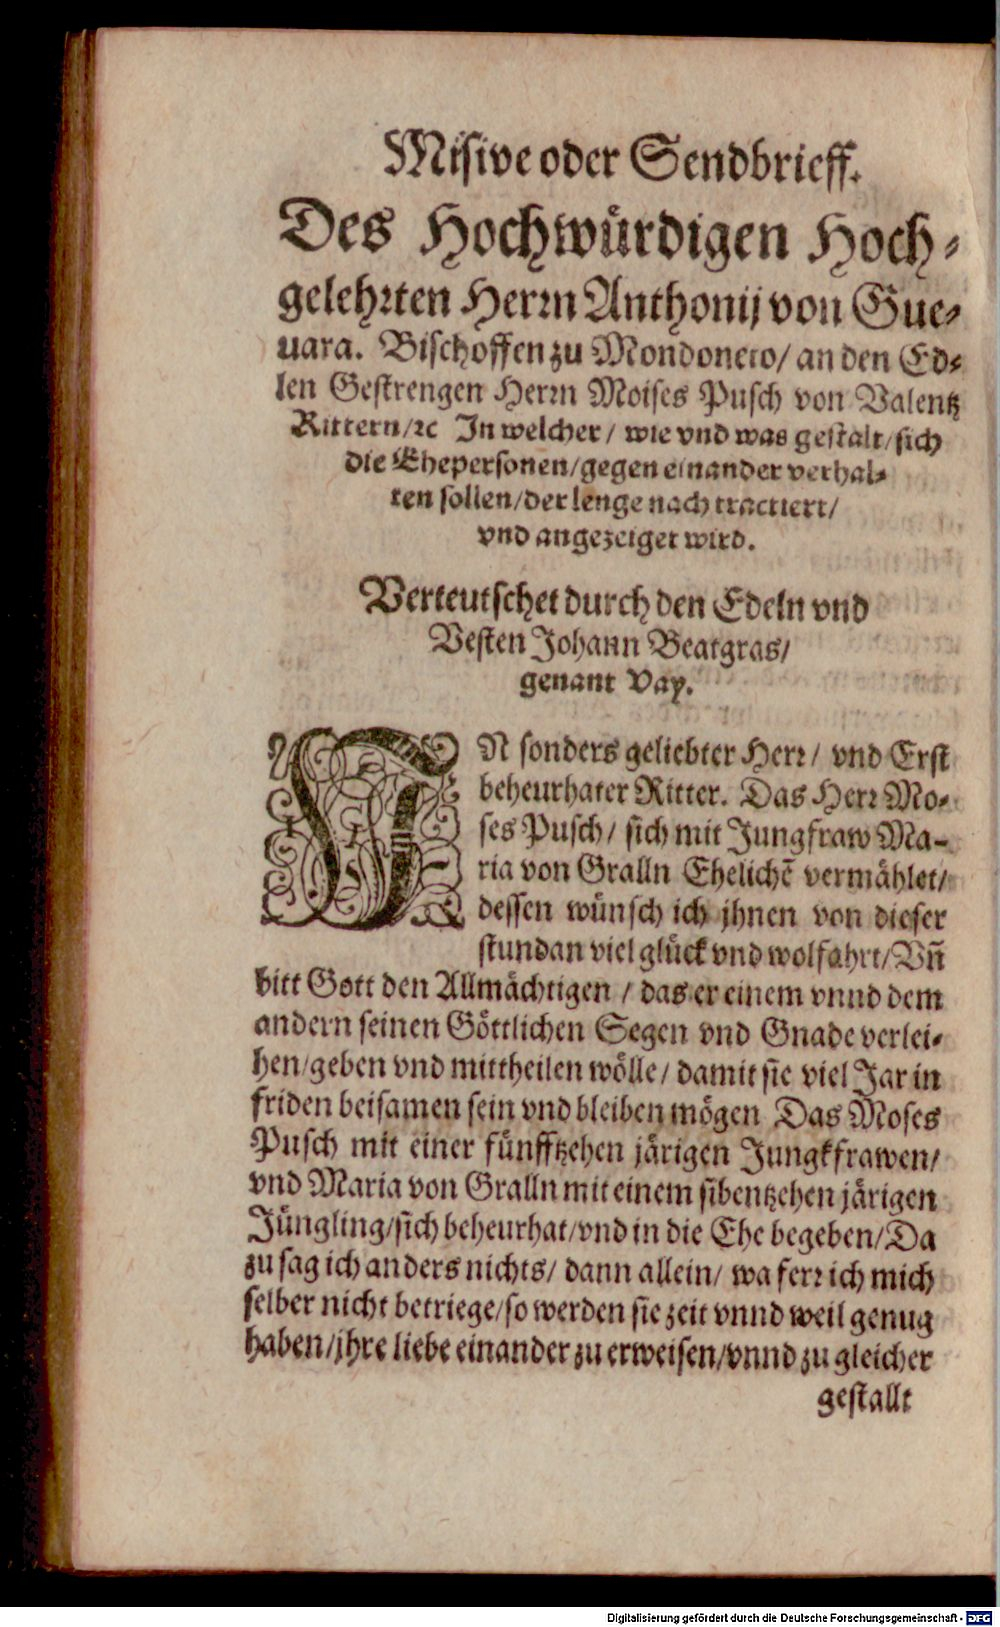 Misive oder Sendbrieff.
Des Hochwürdigen Hoch-
gelehrten Herrn Anthonij von Gue-
uara. Bischoffen zu Mondoneto/ an den Ed-
len Gestrengen Herrn Moises Pusch von Valentz
Rittern/ ꝛc In welcher/ wie vnd was gestalt/ sich
die Ehepersonen/ gegen einander verhal-
ten sollen/ der lenge nach tractiert/
vnd angezeiget wird.
Verteutschet durch den Edeln vnd
Vesten Johann Beatgras/
genant Vay.
IN sonders geliebter Herr/ vnd Erst
beheurhater Ritter. Das Herr Mo-
ses Pusch/ sich mit Jungfraw Ma-
ria von Gralln Ehelichẽ vermählet/
dessen wünsch ich jhnen von dieser
stundan viel glück vnd wolfahrt/ Vñ
bitt Gott den Allmächtigen/ das er einem vnnd dem
andern seinen Göttlichen Segen vnd Gnade verlei-
hen/ geben vnd mittheilen wölle/ damit sie viel Jar in
friden beisamen sein vnd bleiben mögen Das Moses
Pusch mit einer fünfftzehen järigen Jungkfrawen/
vnd Maria von Gralln mit einem sibentzehen järigen
Jüngling/ sich beheurhat/ vnd in die Ehe begeben/ Da
zu sag ich anders nichts/ dann allein/ wa ferr ich mich
selber nicht betriege/ so werden sie zeit vnnd weil genug
haben/ jhre liebe einander zu erweisen/ vnnd zu gleicher
gestallt
Digitalisierung gefördert durch die Deutsche Forschungsgemeinschaft - DFG